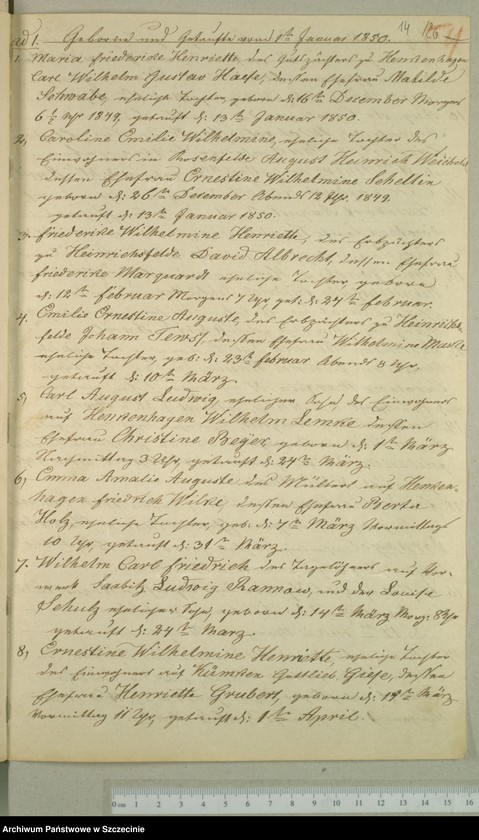 14 126
ad 1. Geborne und Getaufte vom 1ten Januar 1850.
1. Maria Friederike Henriette, des Gutspächters zu Henkenhagen
Carl Wilhelm Gustav Haese, dessen Ehefrau Mathilde
Schwabe, eheliche Tochter, geboren d: 16ten December Morgens
6 ½ Uhr 1849, getauft d: 13ten Januar 1850.
2, Caroline Emilie Wilhelmine, eheliche Tochter des
Einwohners in Rosenfelde August Heinrich
dessen Ehefrau Ernestine Wilhelmine Schellin
geboren d: 26ten December Abends 12 Uhr. 1849.
getauft d: 13ten Januar 1850.
3. Friederike Wilhelmine Henriette, des Erbpächters
zu Heinrichsfelde David Albrecht, dessen Ehefrau
Friederike Marquardt eheliche Tochter, geboren
d: 12ten Februar Morgens 7 Uhr get: d: 24ten Februar.
4. Emilie Ernestine Auguste, des Erbpächters zu Heinrichs-
felde Johann Tews, dessen Ehefrau Wilhelmine
eheliche Tochter, geb: d: 23ten Februar Abends 8 Uhr,
getauft d: 10ten März.
5, Carl August Ludwig, ehelicher Sohn des Einwohners
auf Henkenhagen Wilhelm Lemke dessen
Ehefrau Christine Beger, geboren d: 1ten März
Nachmittag 3 Uhr, getauft d: 24ten März.
6, Emma Amalie Auguste des Müllers auf Henken-
hagen Friedrich Wilke, dessen Ehefrau Berta
Holz, eheliche Tochter, geb: d: 7ten März Vormittags
10 Uhr, getauft d: 31ten März.
7. Wilhelm Carl Friedrich des Tagelöhners auf Vor-
werk Saabitz Ludwig Ramnow, und der Louise
Schulz ehelicher Sohn, geboren d: 14ten März Morg: 8 Uhr
getauft d: 24ten März.
8, Ernestine Wilhelmine Henriette, eheliche Tochter
des Einwohners auf Kümken Gottlieb Giese, dessen
Ehefrau Henriette Grubert, geboren d: 19ten März
Vormittag 11 Uhr, getauft d: 1ten April.
0 cm 1 2 3 4 5 6 7 8 9 10 11 12 13 14 15 16
Archiwum Państwowe w Szczecinie